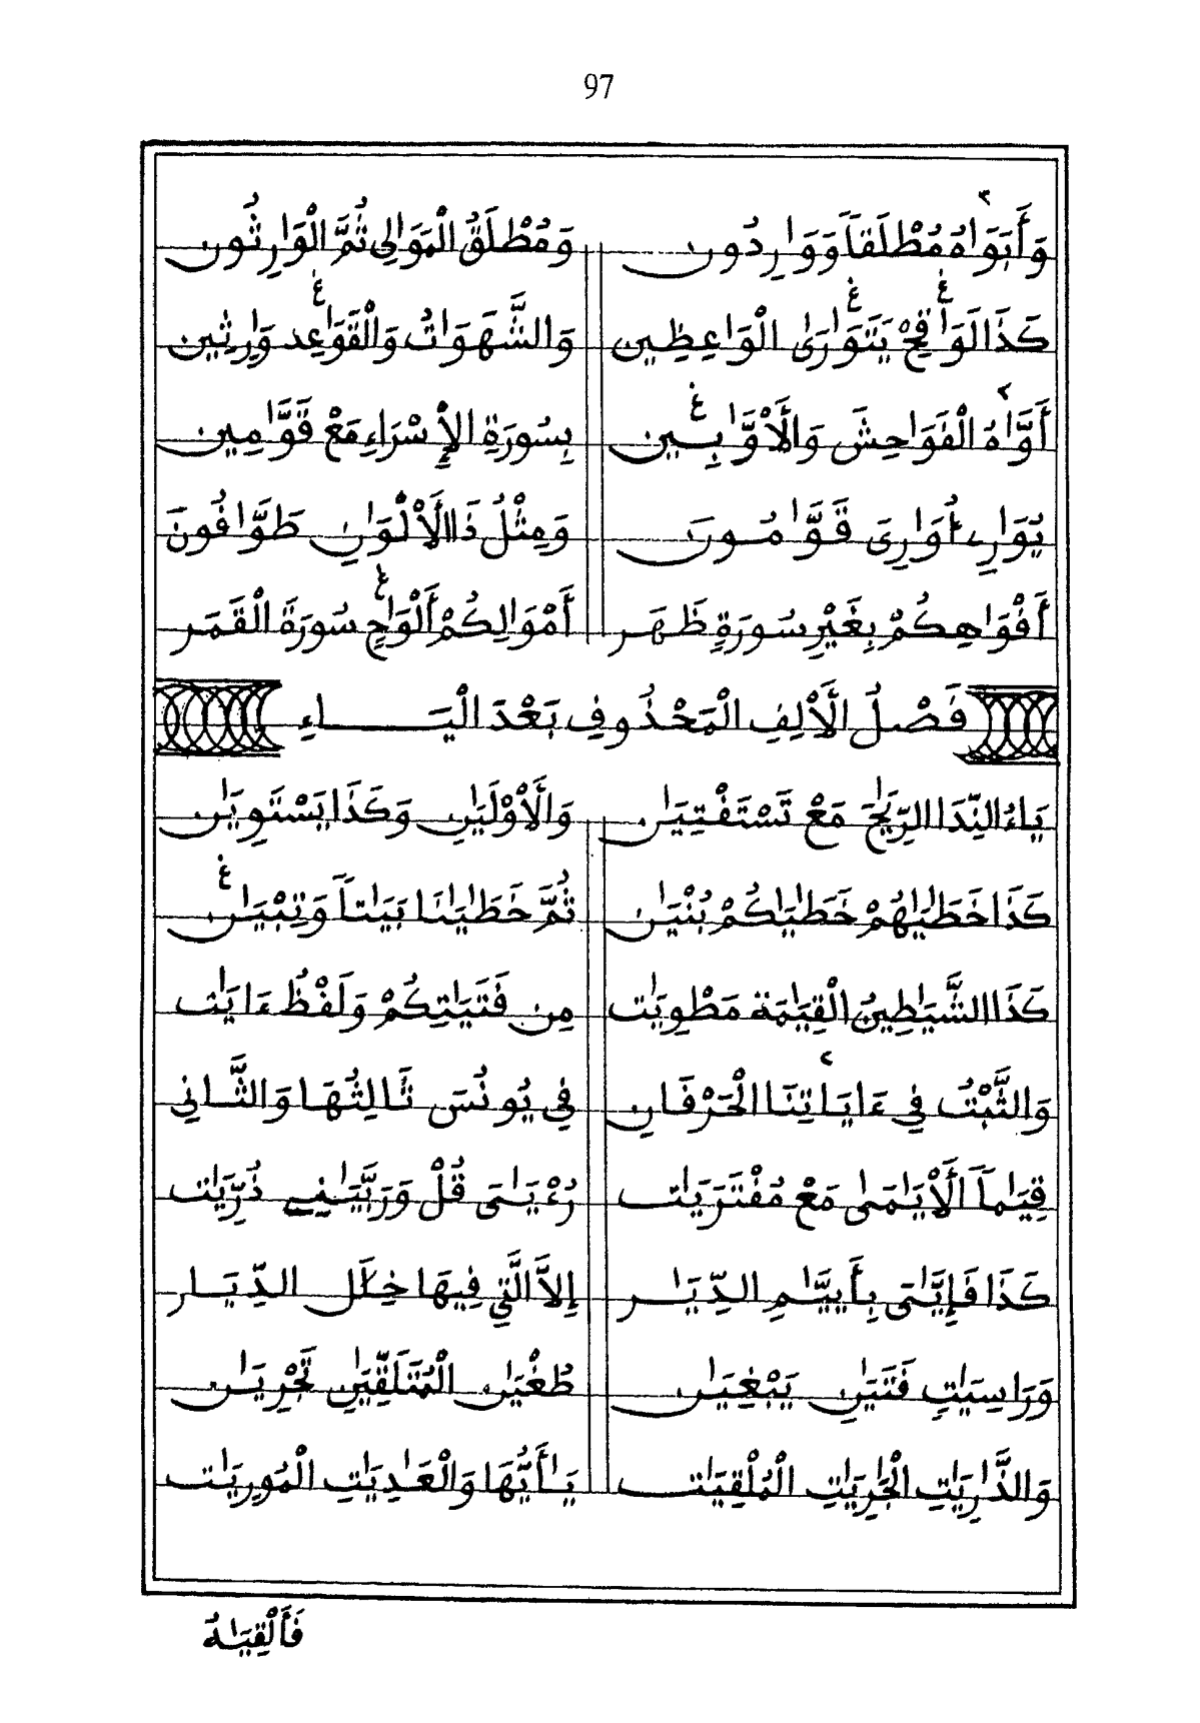 97
وَأَبَوَاهُ مُطْلَقاً وَوَارِدُون وَمُطْلَقُ الْمَوَالِي ثُمَّ الْوَارِثُون
كَذَا لَوَاقِحْ يَتَوَارَىٰ الْوَاعِظِين وَالشَّهَوَاتُ وَالْقَوَاعِد وَارِثِين
أَوَّاهُ الْفَوَاحِشَ وَالْأَوَّابِين بِسُورَةِ الْإِسْرَاءِ مَعْ قَوَّامِين
يُوَارِے أُوَارِىَ قَوَّامُونَ وَمِثْلُ ذَا الْأَلْوَانِ طَوَّافُونَ
أَفْوَاهِكُمْ بِغَيْرِ سُورَةٍ ظَهَر أَمْوَالِكُمْ أَلْوَاحٍ سُورَةَ الْقَمَر
فَصْلُ الْأَلِفِ الْمَحْذُوفِ بَعْدَ الْيَاءِ
يَاءُ النِّدَا الرِّيَٰحَ مَعْ تَسْتَفْتِيَٰن وَالْأَوْلَيَٰنِ وَكَذَا يَسْتَوِيَٰن
كَذَا خَطَٰيَٰهُمْ خَطَٰيَٰكُمْ بُنْيَٰن ثُمَّ خَطَٰيَٰنَا بَيَٰتاً وَتِبْيَٰن
كَذَا الشَّيَٰطِينُ الْقِيَٰمَة مَطْوِيَٰت مِن فَتَيَٰتِكُمْ وَلَفْظُ ءَايَٰت
وَالثَّبْتُ فِي ءَايَاتِنَا الْحَرْفَانِ فِي يُونُسَ ثَالِثُهَا وَالثَّانِي
قِيَٰماً الْأَيَٰمَىٰ مَعْ مُفْتَرَيَٰت رُءْيَٰىَ قُلْ وَرَبَّيَٰنِے ذُرِّيَٰت
كَذَا فَإِيَّٰىَ بِأَييَّٰمِ الدِّيَٰر إِلاَّ الَّتِي فِيهَا خِلَٰلَ الدِّيَار
وَرَاسِيَٰتٍ فَتَيَٰنِ يَبْغِيَٰن طُغْيَٰن الْمُتَلَقِّيَٰنِ تَجْرِيَٰن
وَالذَّٰرِيَٰتِ الْجَٰرِيَٰتِ الْمُلْقِيَٰت يَٰأَيُّهَا وَالْعَٰدِيَٰتِ الْمُورِيَٰت
فَأَلْقِيَٰهُ